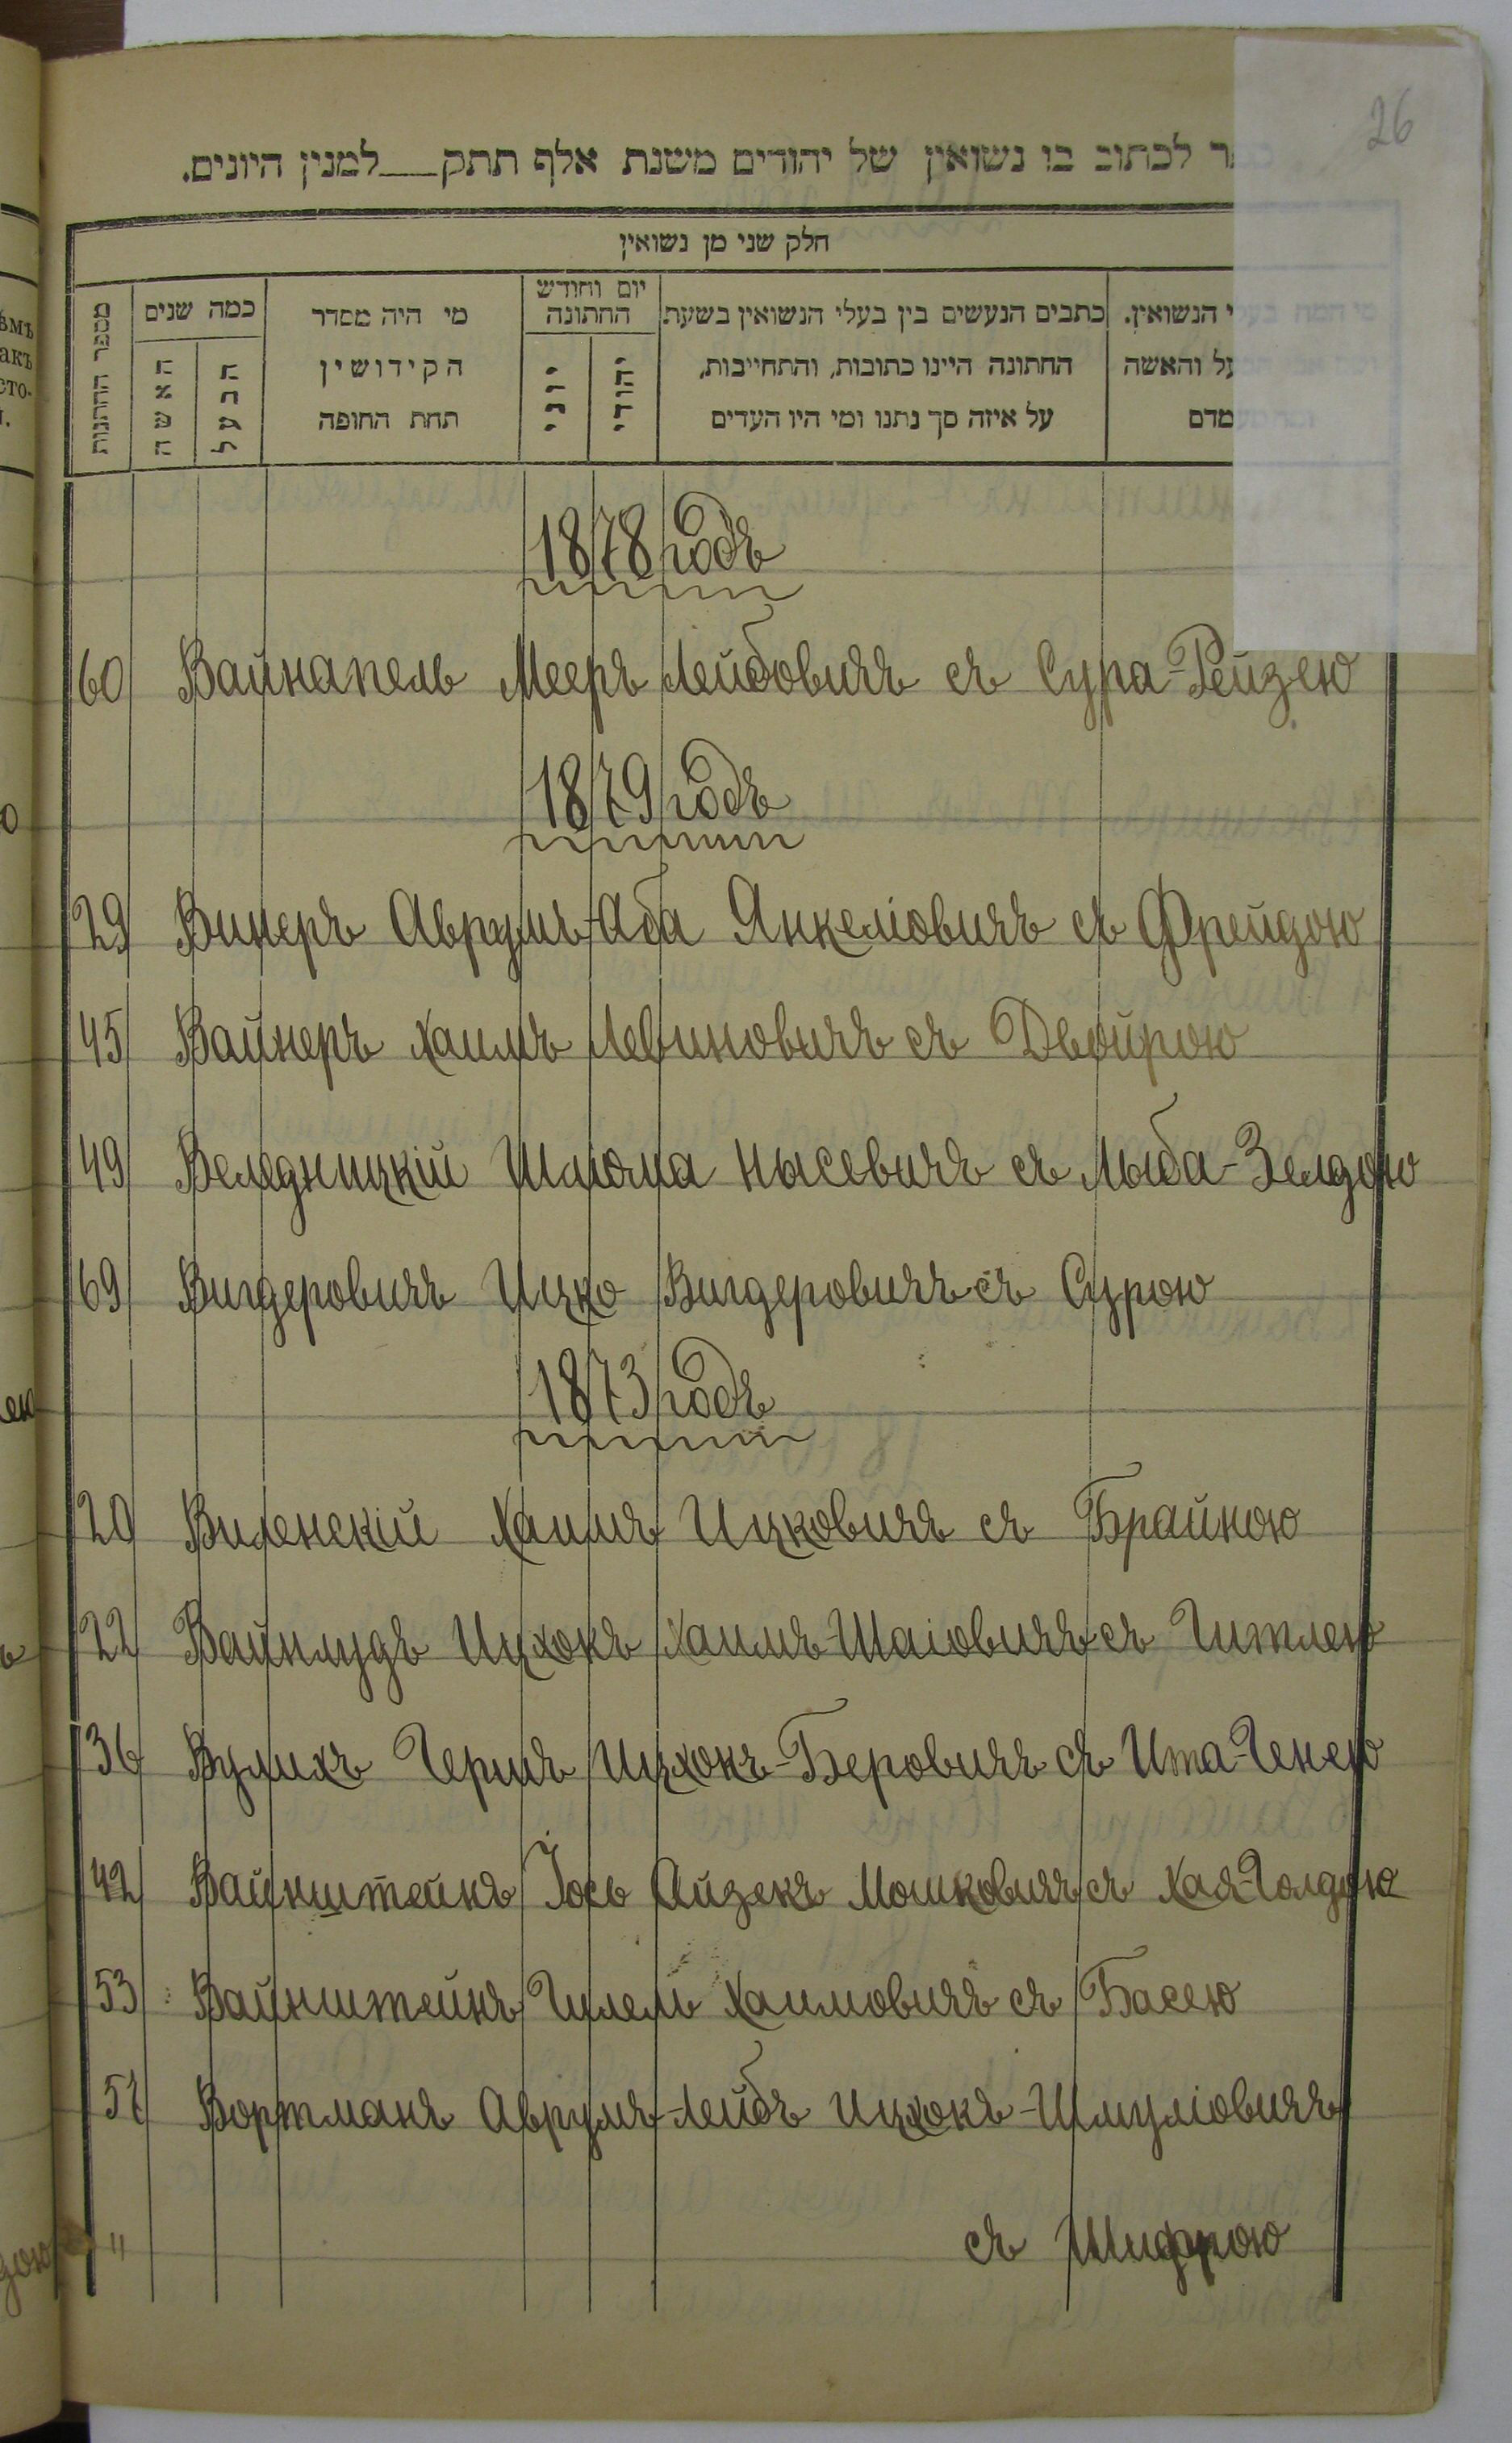 26
לכתוב בו נשואין של יהודים משנת אלף תתק___למנין היונים.
חלק שני מן נשואין
מספר החתונות
כמה שנים
האשה
הבעל
מי היה מסדר
הקידושין
תחת החופה
יום וחודש
החתונה
יוני
יהודי
כתבים הנעשים בין בעלי הנשואין בשעת
החתונה היינו כתובות, והתחייבות,
על איזה סך נתנו ומי היו העדים
הנשואין.
והאשה
1878 годъ
60 Вайнапель Мееръ Лейбовичъ съ Сура-Рейзею
1879 годъ
29 Винеръ Аврумъ-Аба Янкеліовичъ съ Фрейдою
45 Вайнеръ Хаимъ Левиновичъ съ Двойрою
49 Веледницкій Шліома Нысевичъ съ Лыба-Зелдою
69 Вигдеровичъ Ицко Вигдеровичъ съ Сурою
1873 годъ
20 Виленскій Хаимъ Ицковичъ съ Брайною
22 Вайнлудъ Ицхокъ Хаимъ-Шаіовичъ съ Гитлею
36 Вулихъ Гершъ Ицхокъ-Беровичъ съ Ита-Генею
42 Вайнштейнъ Іось Айзекъ Мошковичъ съ Хая-Голдою
53 Вайнштейнъ Гилель Хаимовичъ съ Басею
57 Вортманъ Аврумъ-Лейбъ Ицхокъ-Шмуліовичъ
" съ Шифрою